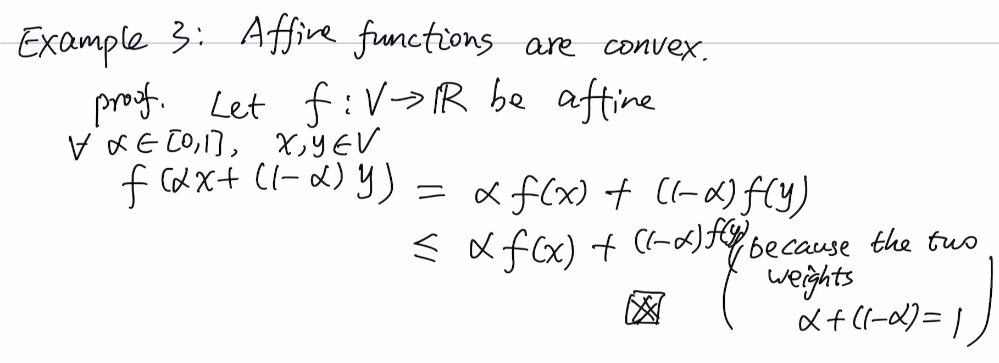 Example 3: Affine functions are convex.
proof. Let f : V → ℝ be affine
∀ α ∈ [0,1], x, y ∈ V
f(αx + (1-α) y) = α f(x) + (1-α) f(y)
≤ α f(x) + (1-α) f(y) (because the two
weights
α + (1-α) = 1)